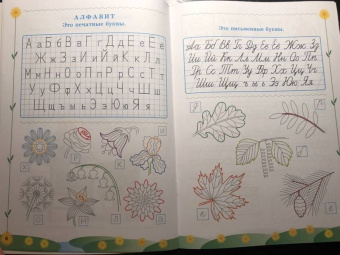 АЛФАВИТ
Это печатные буквы.
Аа Бб Вв Гг Дд Ее Ёё
Жж Зз Ии Йй Кк Лл
Мм Нн Оо Пп Рр Сс
Тт Уу Фф Хх Цц Чч
Шш Щщ ъ ы ь Ээ Юю Яя
Это письменные буквы.
Аа Бб Вв Гг Дд Ее Ёё Жж Зз
Ии Йй Кк Лл Мм Нн Оо Пп
Рр Сс Тт Уу Фф Хх Цц Чч
Шш Щщ ъ ы ь Ээ Юю Яя